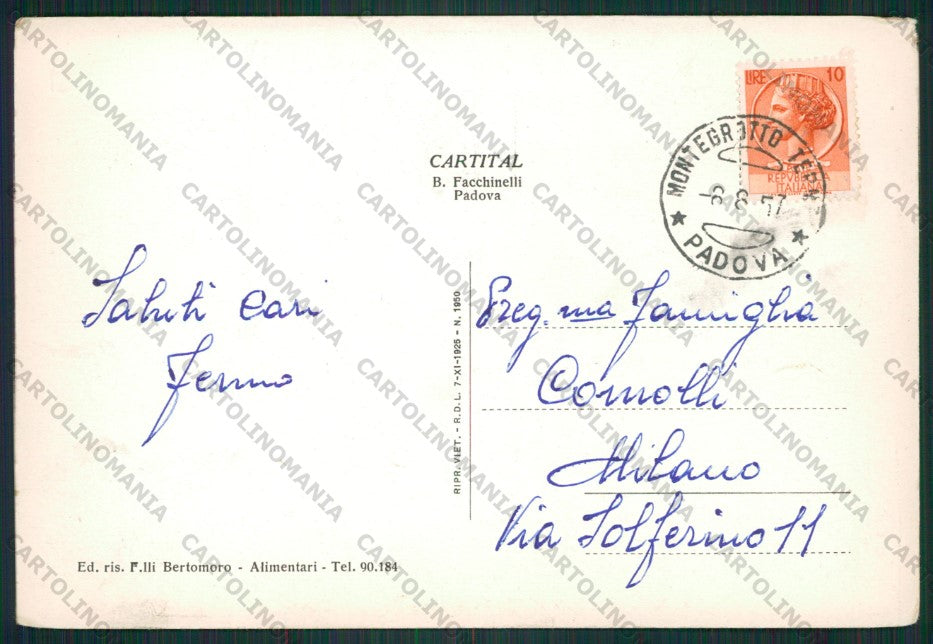 LIRE 10
REPVBBLICA
ITALIANA
MONTEGROTTO TERME
-8 8 57
★ PADOVA ★
CARTITAL
B. Facchinelli
Padova
Saluti cari
Fermo
RIPR. VIET. - R.D.L. 7-XI-1925 - N. 1950
Preg.ma Famiglia
Comolli
Milano
Via Solferino 11
Ed. ris. F.lli Bertomoro - Alimentari - Tel. 90.184
CARTOLINOMANIA